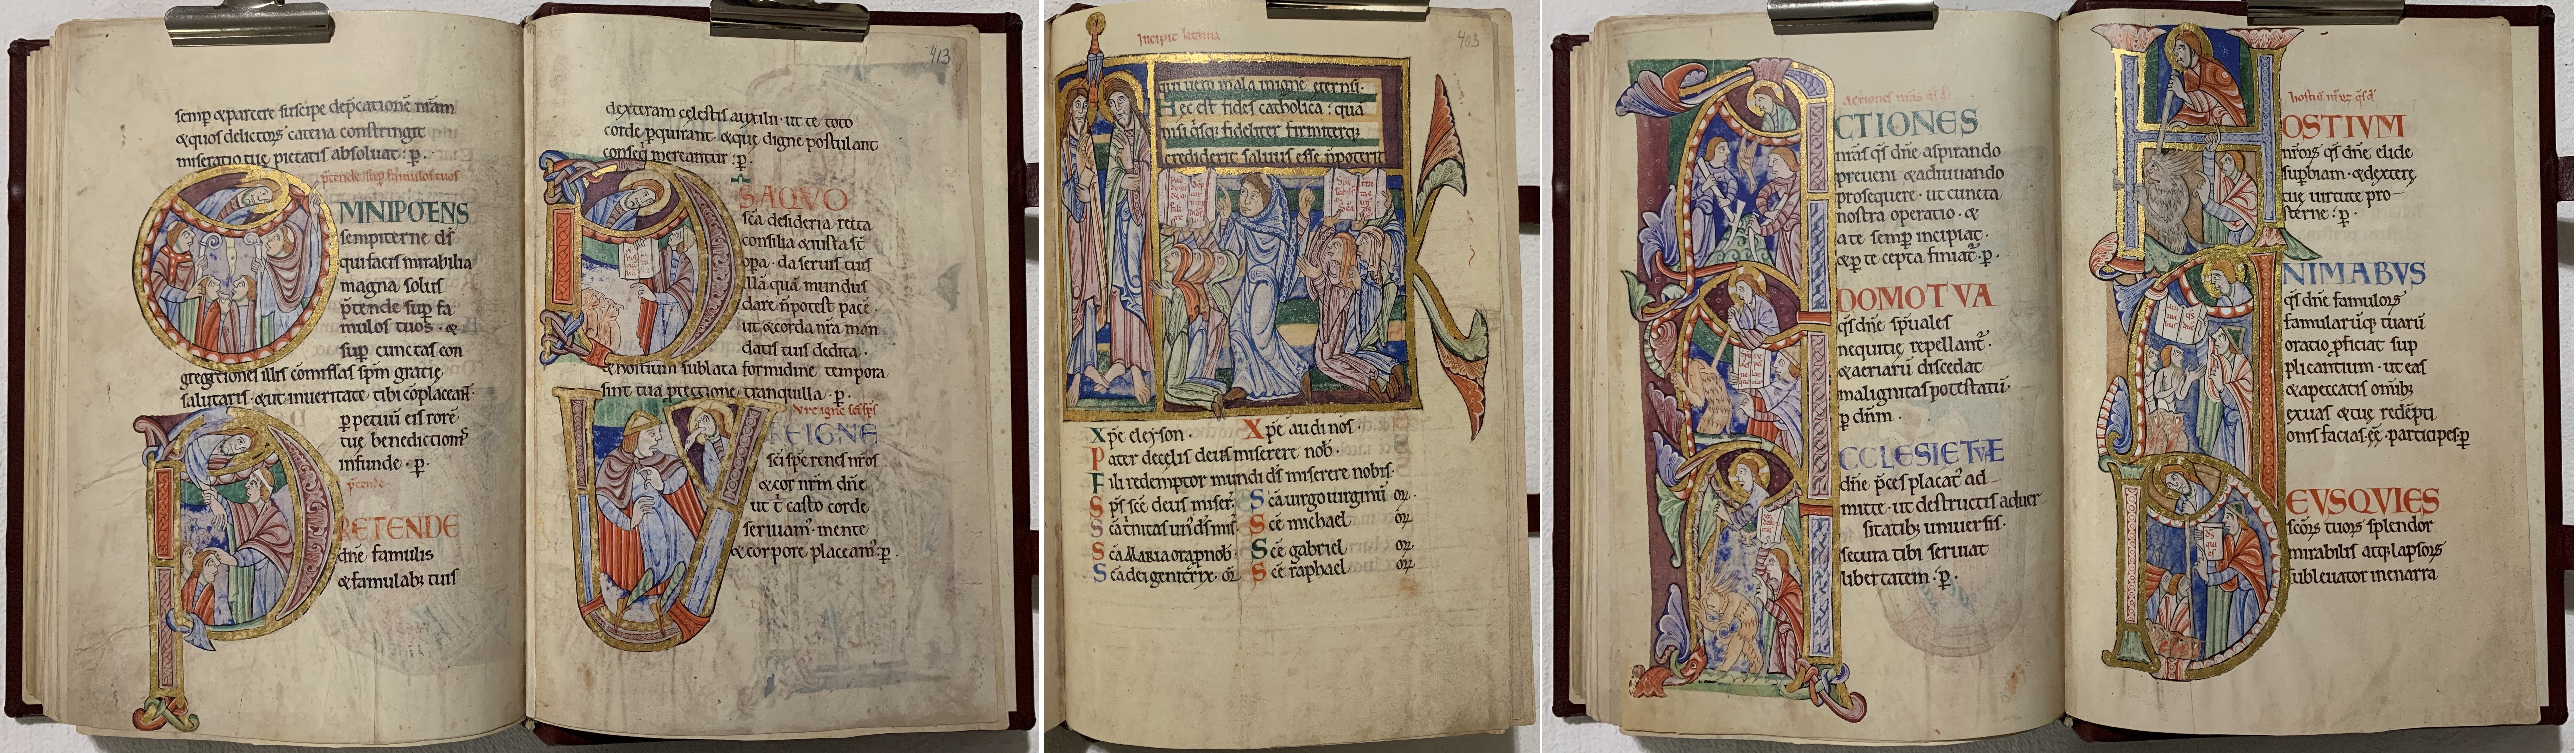 semp & parcere suscipe dep̄catione nr̄am
& quos delictoꝝ catena constringit
miseratio tue pietatis absoluat : p̄ .
p̄tende sup famulos tuos
OMNIPOTENS
sempiterne d̄s
qui facis mirabilia
magna solus
p̄tende sup fa
mulos tuos · &
sup cunctas con
gregationes illis cōmissas sp̄m gratie
salutaris · & ut in ueritate tibi cōplaceant
ppetuū eis rorē
tue benedictionis
infunde · p̄ .
p̄tende
PRETENDE
dn̄e famulis
& famulab; tuis
413
dexteram celestis auxilii · ut te toto
corde pquirant · & que digne postulant
consequi mereantur : p̄ .
DS AQVO
sc̄a desideria recta
consilia & iusta st̄
opa · da seruis tuis
illā quā mundus
dare n̄ potest pacē ·
ut & corda nr̄a man
datis tuis dedita ·
& hostium sublata formidine tempora
sint tua ptectione tranquilla · p̄ .
Vre igne sc̄i sp̄s
VRE IGNE
sc̄i sp̄s renes nr̄os
& cor nr̄m dn̄e
ut t̄ casto corde
seruiam · mente
& corpore placeam : p̄ .
Incipit letania
403
qui uero mala in ignē eternū .
Hec est fides catholica : quā
nisi q̄sq; fideliter firmiterq;
crediderit saluus esse n̄ poterit
Xp̄e eleyson .
Xp̄e audi nos .
Pater de celis deus miserere nob̄ .
Fili redemptor mundi d̄s miserere nobis .
Sp̄s sc̄e deus miser̄ .
Sc̄a uirgo uirginū or̄ .
Sc̄a t̄nitas un' d̄s mis̄
Sc̄e michael or̄
Sc̄a MARIA ora p nob̄ .
Sc̄e gabriel or̄ .
Sc̄a dei genitrix · or̄
Sc̄e raphael or̄
Actiones nr̄as q̄s d̄
ACTIONES
nr̄as q̄s dn̄e aspirando
preueni & adiuuando
prosequere · ut cuncta
nostra operatio · &
a te semp incipiat ·
& p te cepta finiat · p̄ .
ADOMO TVA
q̄s dn̄e sp̄uales
nequitie repellant ·
& aeriarū discedat
malignitas potestatū ·
p dn̄m .
ECCLESIE TVÆ
dn̄e p̄ces placat' ad
mitte · ut destructis aduer
sitatib; uniuersis ·
secura tibi seruiat
libertatem · p̄ .
hostiū nr̄oꝝ q̄s d̄
HOSTIVM
nr̄oꝝ q̄s dn̄e elide
supbiam · & dextere
tue uirtute pro
sterne : p̄ .
ANIMABVS
q̄s dn̄e famuloꝝ
famularūq; tuarū
oratio pficiat sup
plicantium · ut eas
& a peccatis om̄ib;
exuas & tue redēpti
onis facias ēē participes · p̄
DEVS QVI ES
sc̄oꝝ tuoꝝ splendor
mirabilis atq; lapsoꝝ
subleuator inenarra